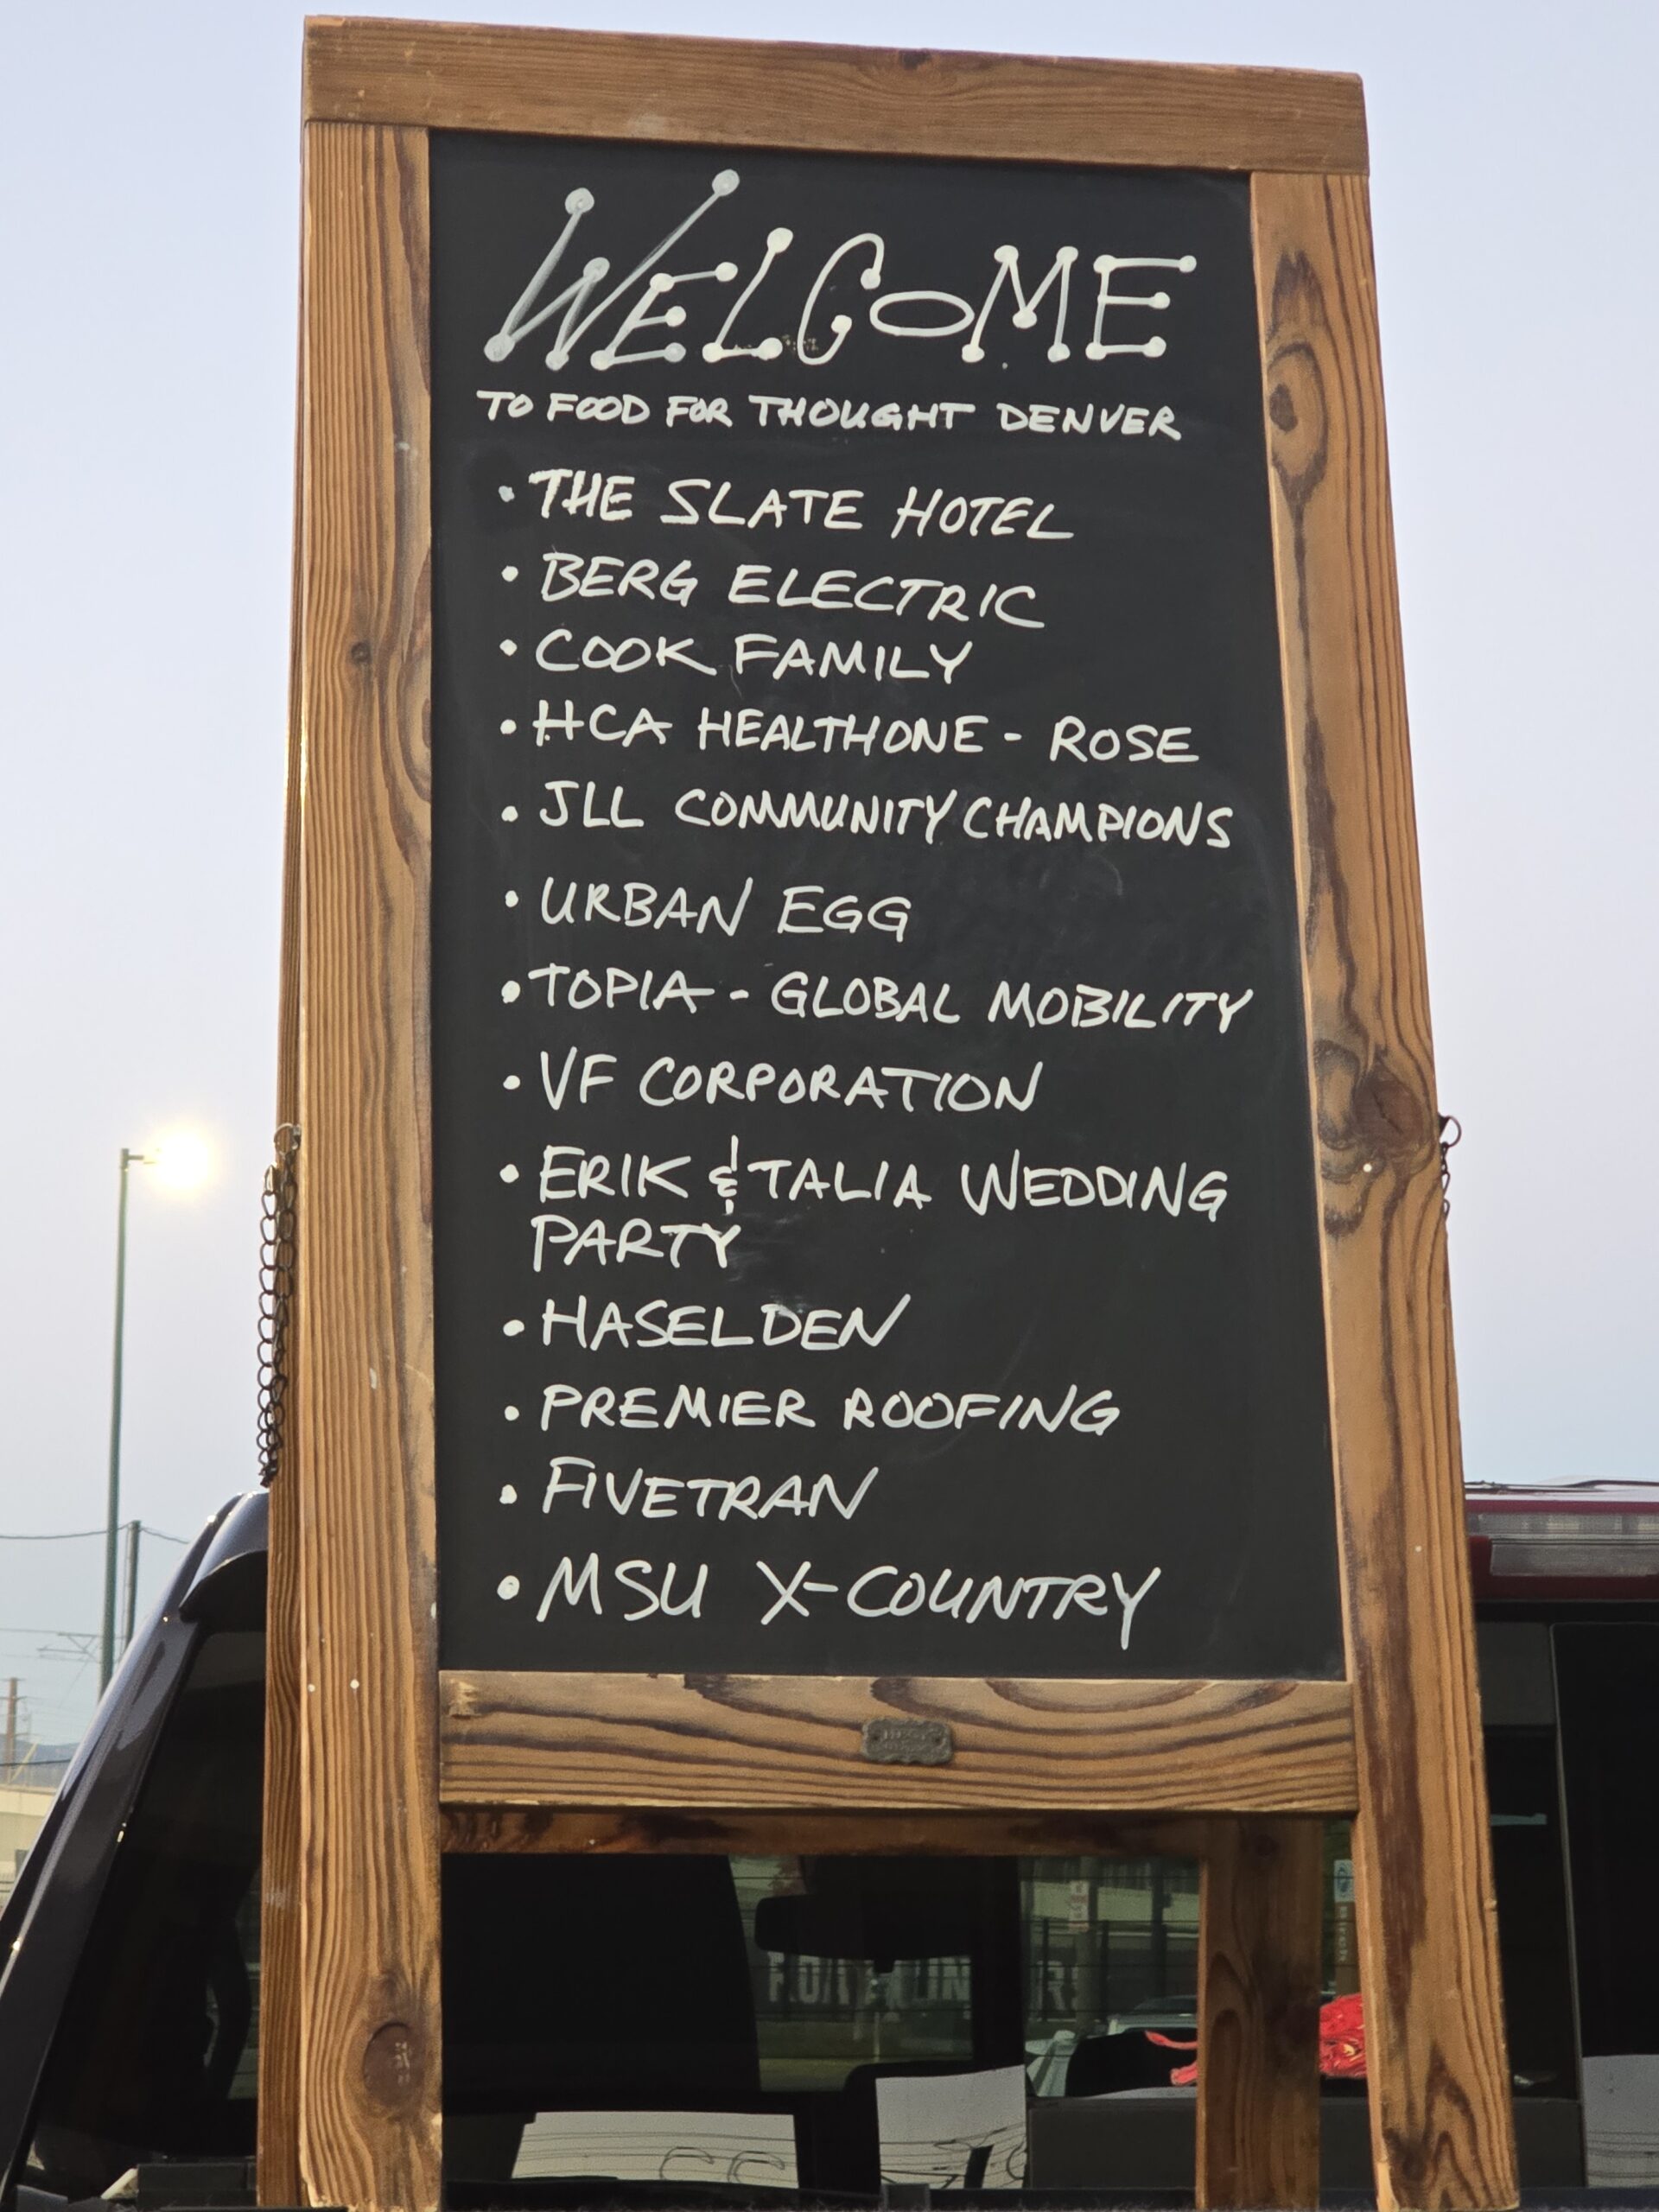 WELCOME
TO FOOD FOR THOUGHT DENVER
• THE SLATE HOTEL
• BERG ELECTRIC
• COOK FAMILY
• HCA HEALTHONE - ROSE
• JLL COMMUNITY CHAMPIONS
• URBAN EGG
• TOPIA - GLOBAL MOBILITY
• VF CORPORATION
• ERIK & TALIA WEDDING
PARTY
• HASELDEN
• PREMIER ROOFING
• FIVETRAN
• MSU X-COUNTRY